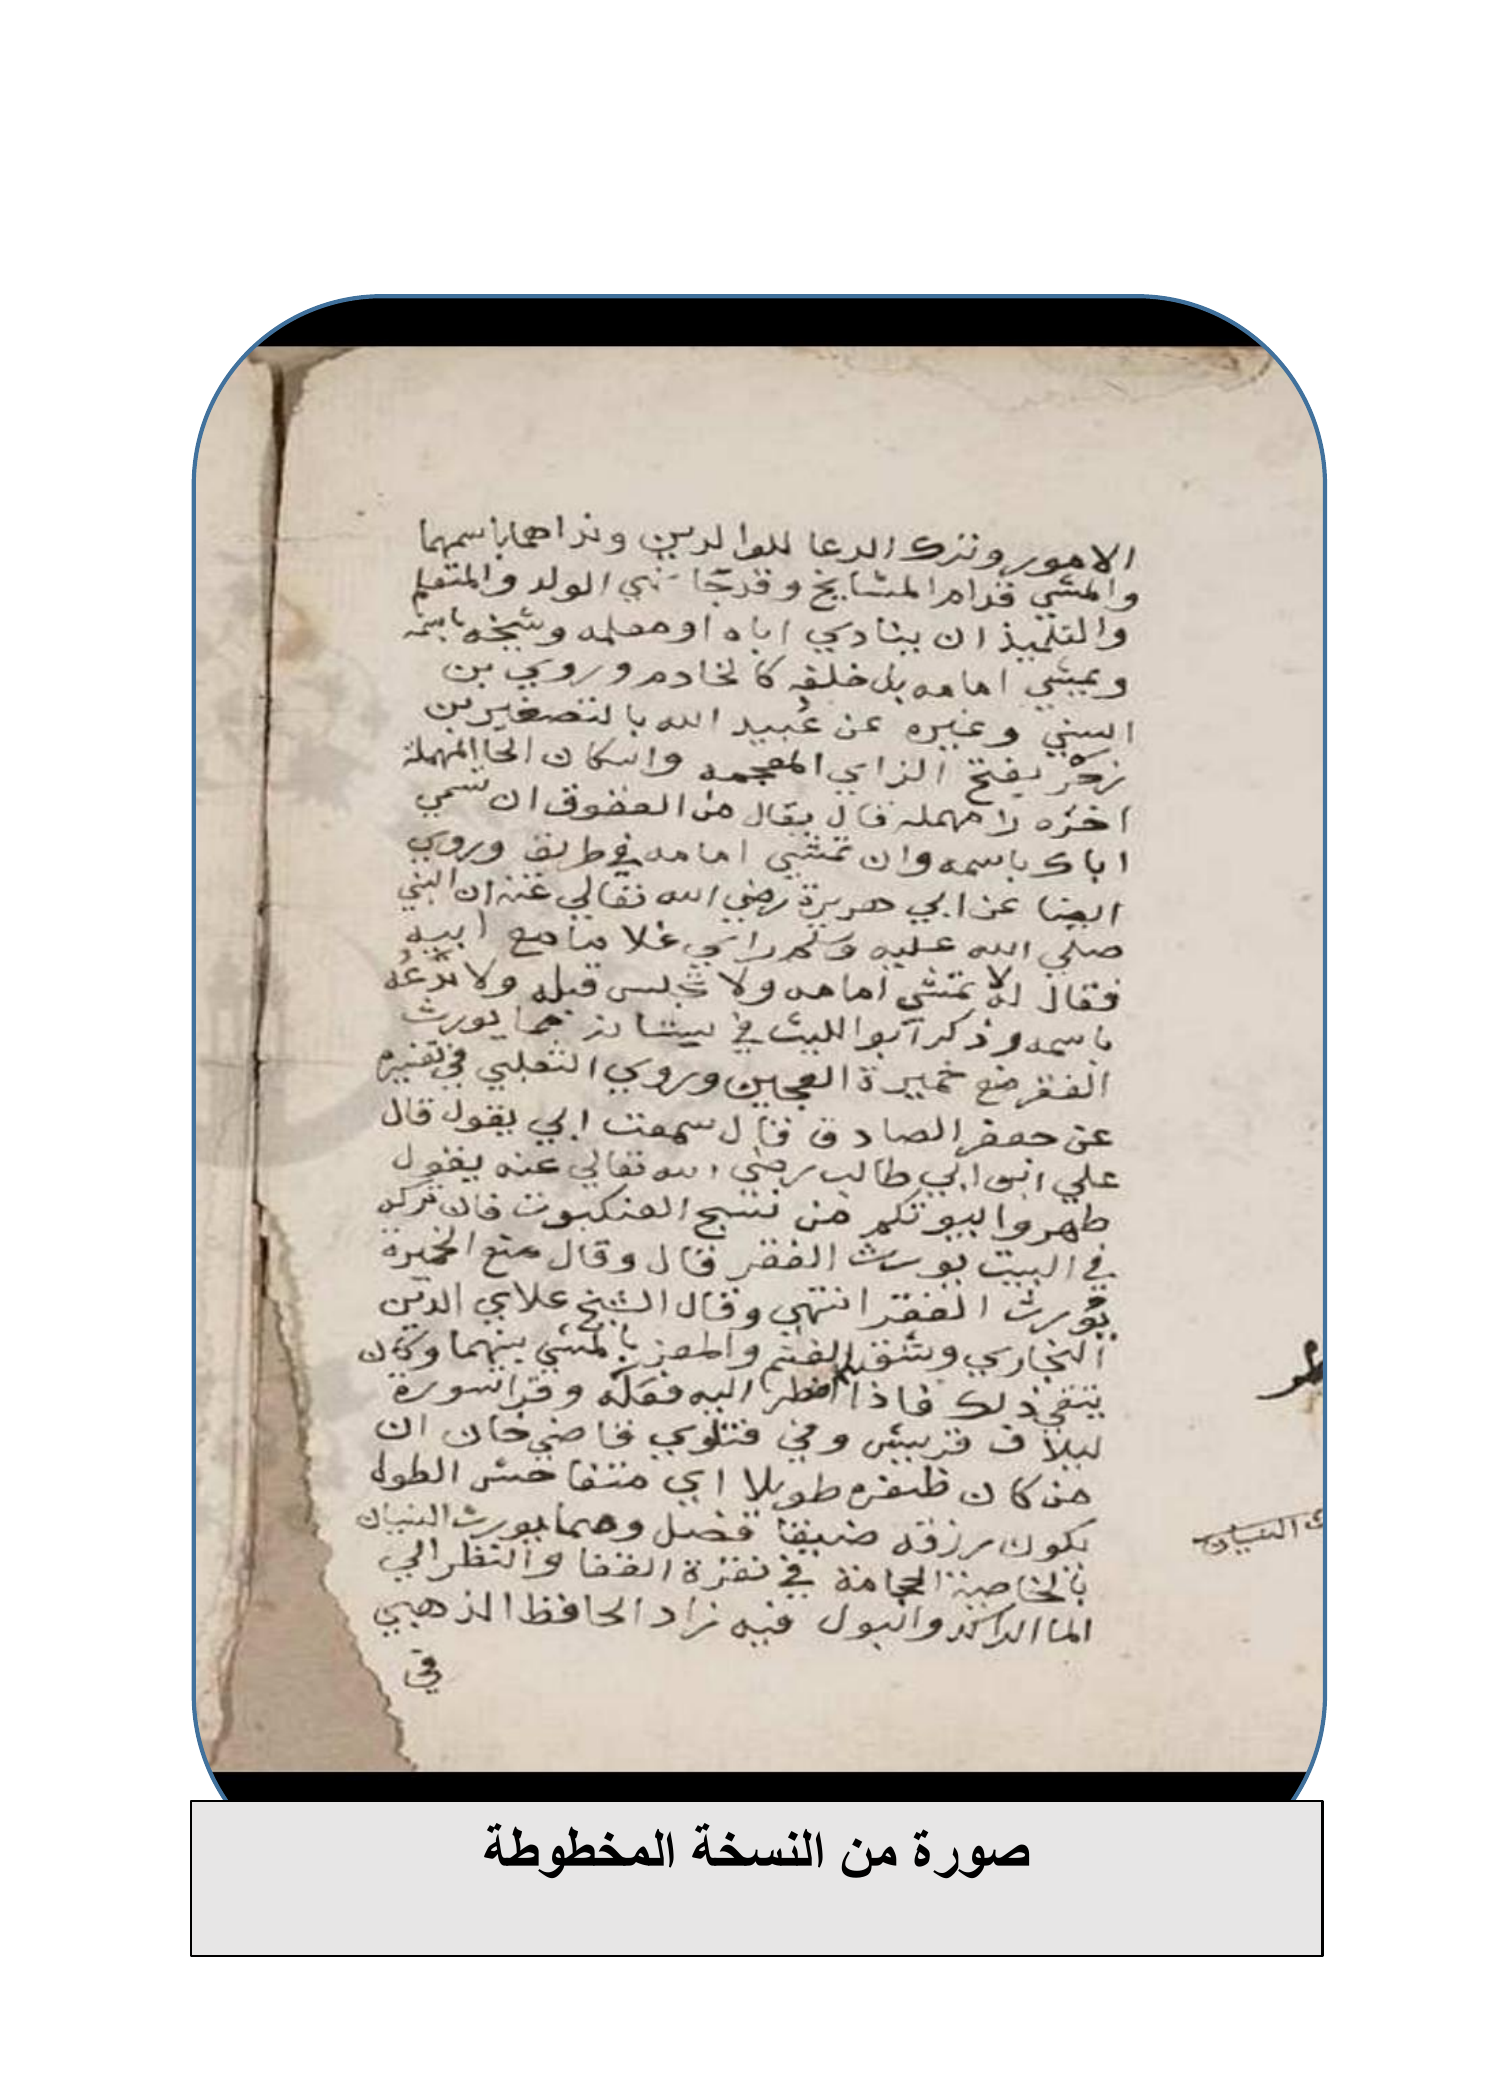 الامور وترك الدعا للوالدين ونداهما باسمهما
والمشي قدام المشايخ وقد جا نهي الولد والمتعلم
والتلميذ ان ينادي اباه او معلمه وشيخه باسمه
ويمشي امامه بل خلفه كالخادم وروي بن
السني وغيره عن عُبيد الله بالتصغير بن
زحْر بفتح الزاي المعجمه واسكان الحا المهملة
اخره را مهملة قال يقال من العقوق ان تسمي
اباك باسمه وان تمشي امامه في طريق وروي
ايضا عن ابي هريرة رضي الله تعالي عنه ان النبي
صلي الله عليه وسلم راي غلاما مع ابيه
فقال له لا تمشي امامه ولا تجلس قبله ولا تدعُه
باسمه وذكر ابو الليث في بستانه مما يورث
الفقر منع خميرة العجين وروي الثعلبي في تفسيره
عن جعفر الصادق قال سمعت ابي يقول قال
علي ابن ابي طالب رضي الله تعالي عنه يقول
طهروا بيوتكم من نسج العنكبوت فان تركه
في البيت يورث الفقر قال وقال منع الخميرة
يورث الفقر انتهي وقال الشيخ علاي الدين
البخاري وشق الغنم والمعز بالمشي بينهما وكان
يتقي ذلك فاذا اضطر اليه فعله وقرا سورة
ليلاف قريش وفي فتاوي قاضي خان ان
من كان ظفره طويلا اي متفاحش الطول
يكون رزقه ضيقا فصل ومما يورث النسيان
بالخاصية الحجامة في نقرة القفا والنظر الي
الما الراكد والبول فيه زاد الحافظ الذهبي
في
النسيان
صورة من النسخة المخطوطة